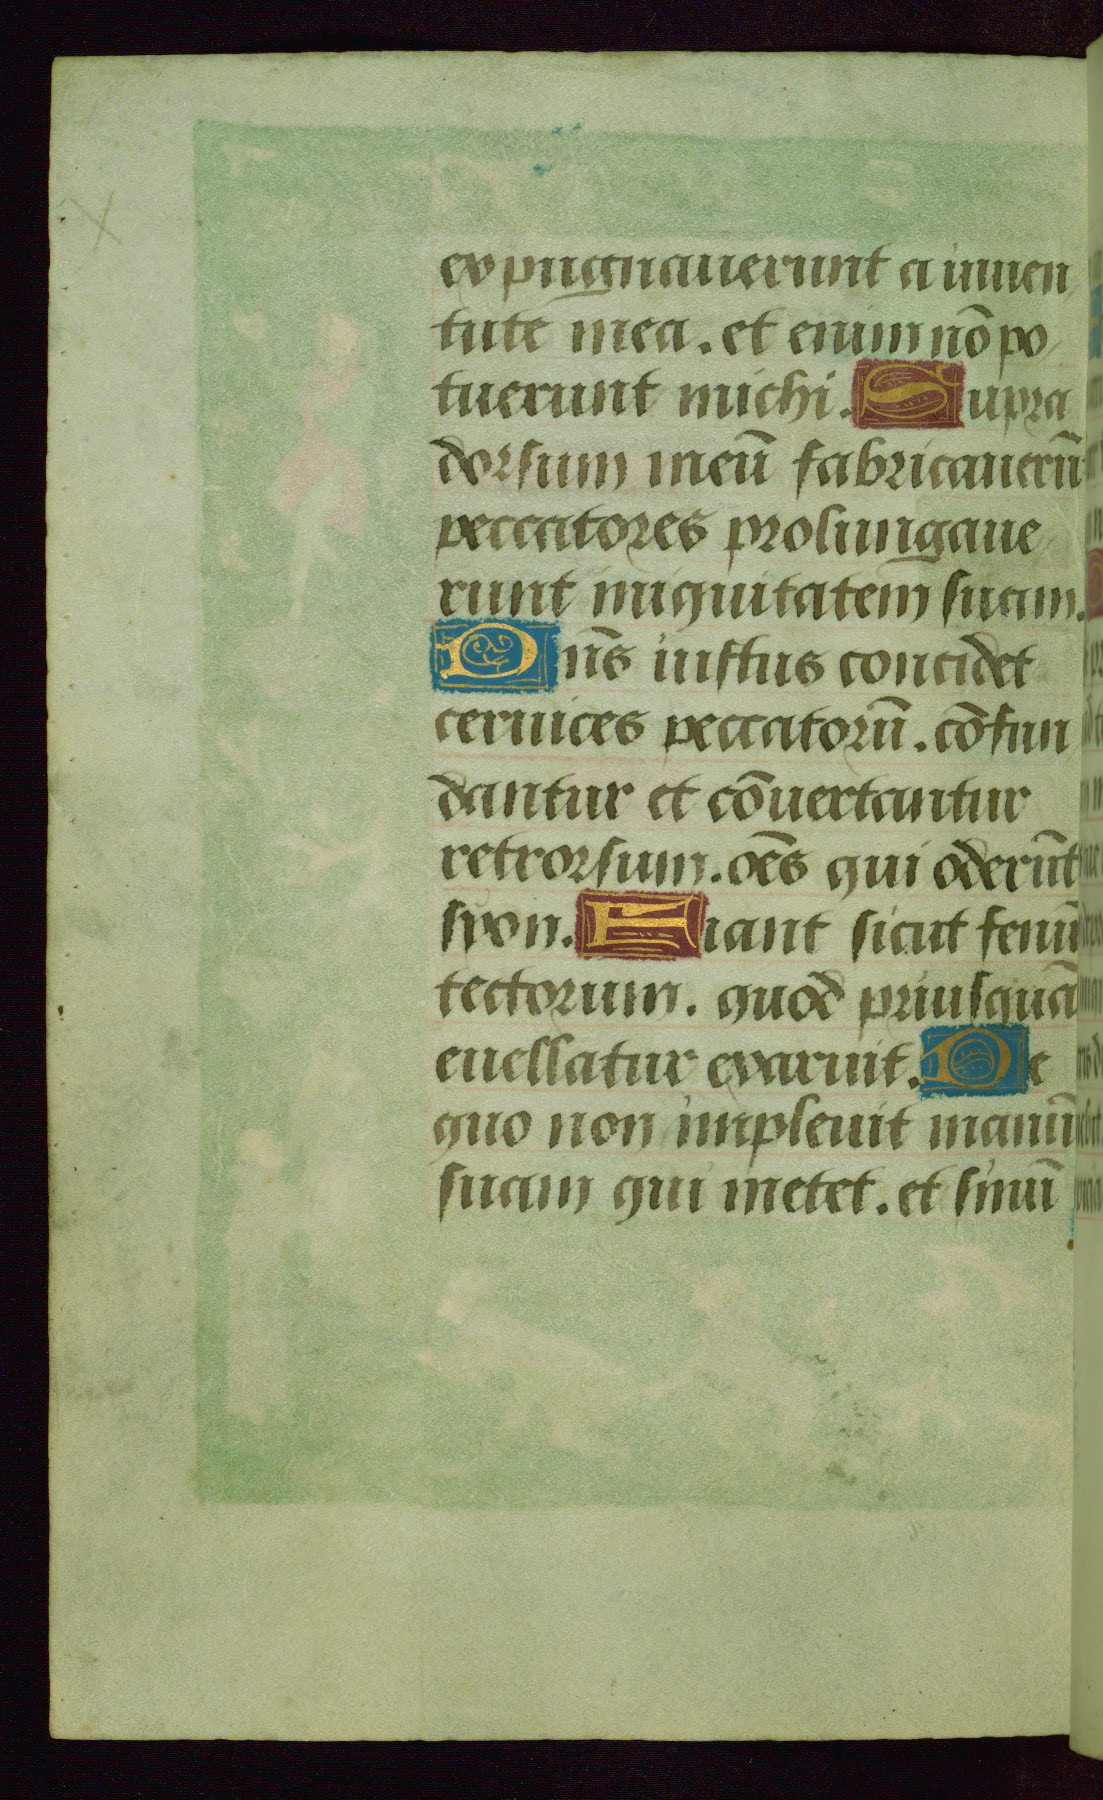 expugnauerunt a iuuen
tute mea. et enim nō po
tuerunt michi. Supra
dorsum meū fabricauerūt
peccatores prolungaue
runt iniquitatem suam.
Dn̄s iustus concidet
ceruices peccatorū. cōfun
dantur et cōuertantur
retrorsum. oēs qui oderūt
syon. Fiant sicut fenū
tectorum. quod priusquā
euellatur exaruit. De
quo non impleuit manū
suam qui metet. et sinū